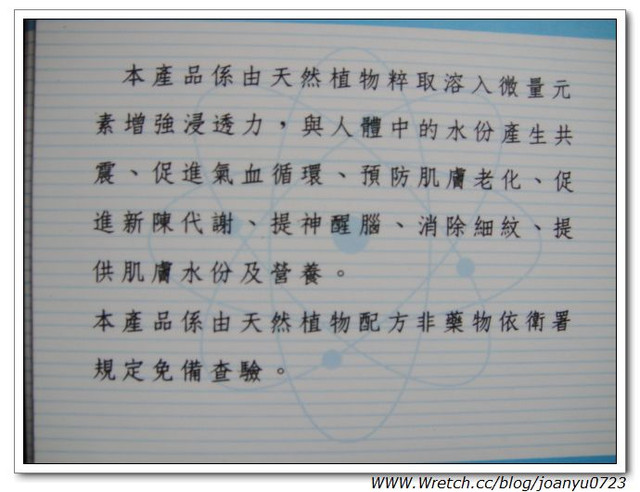 本產品係由天然植物粹取溶入微量元
素增強浸透力，與人體中的水份產生共
震、促進氣血循環、預防肌膚老化、促
進新陳代謝、提神醒腦、消除細紋、提
供肌膚水份及營養。
本產品係由天然植物配方非藥物依衛署
規定免備查驗。
www.Wretch.cc/blog/joanyu0723